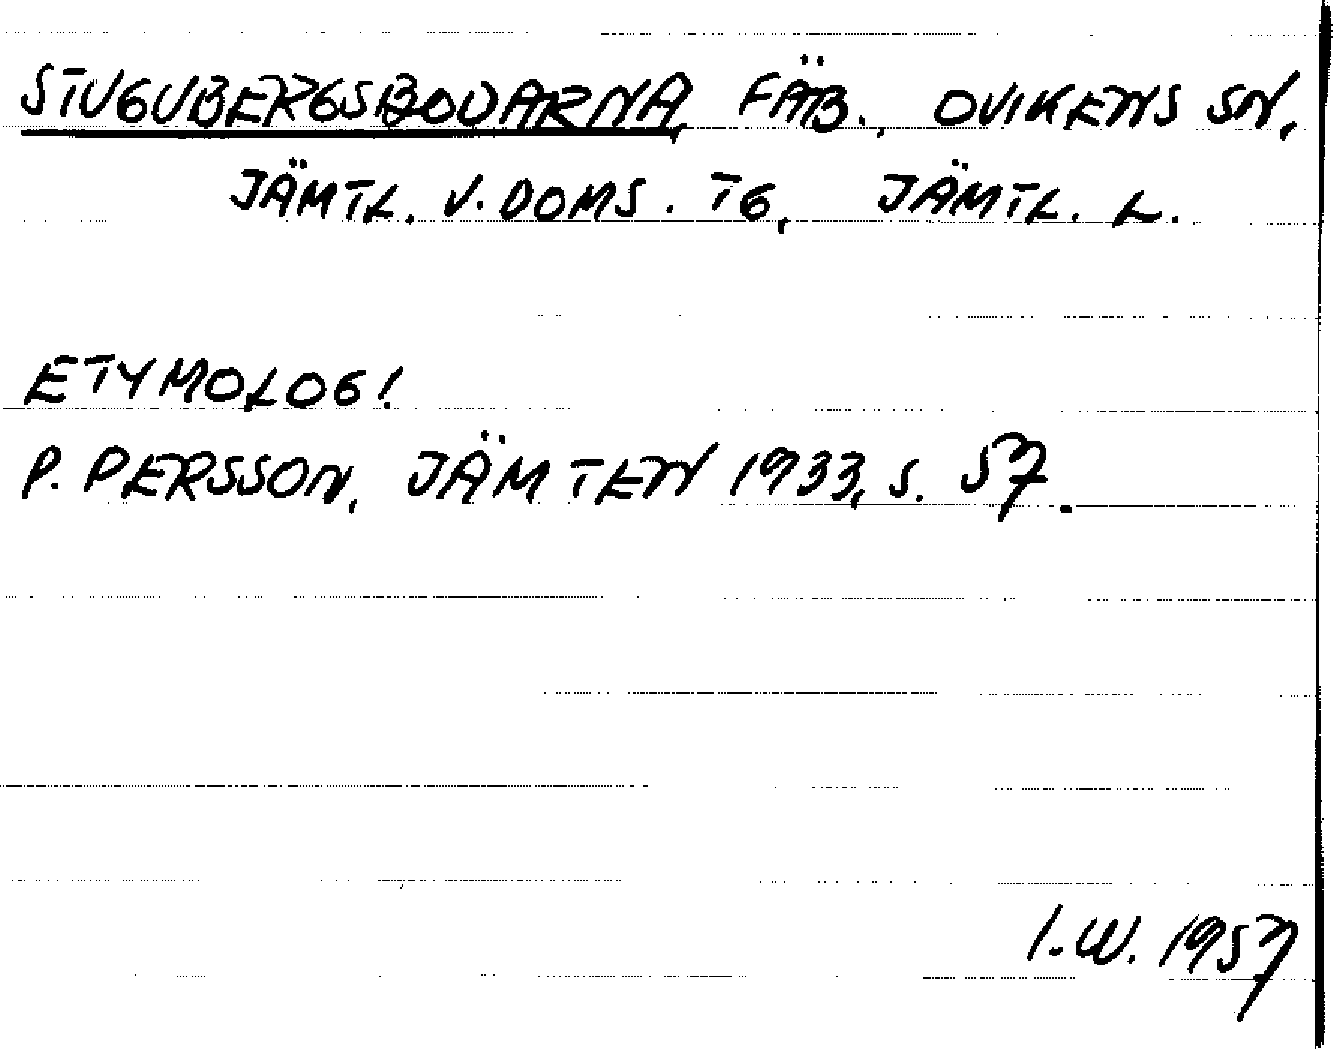 STUGUBERGSBODARNA, FÄB., OVIKENS SN,
JÄMTL. V. DOMS. TG, JÄMTL. L.
ETYMOLOGI
P. PERSSON, JÄMTEN 1933, S. 57.
I.W. 1957